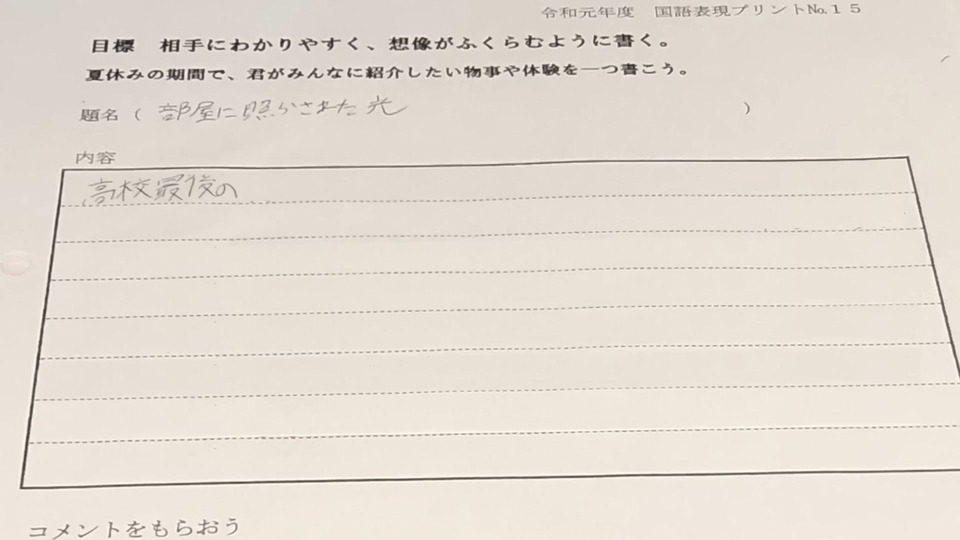 令和元年度 国語表現プリント№15
目標 相手にわかりやすく、想像がふくらむように書く。
夏休みの期間で、君がみんなに紹介したい物事や体験を一つ書こう。
題名（ 部屋に照らされた光 ）
内容
高校最後の
コメントをもらおう